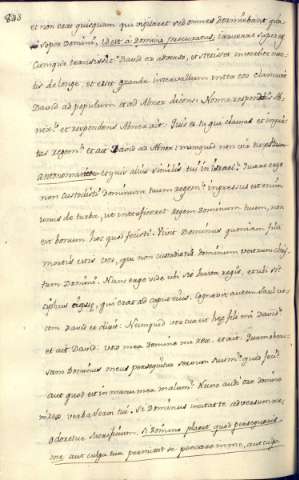 et non erat quisquam qui vigilaret sed omnes dormiebant quia
sopor Domini, id est a Domino procuratus, irruerat super eos
Cumque transisset David ex adverso, et stetisset in vertice mon
tis de longe, et esset grande intervallum inter eos clamavit
David ad populum et ad Abner dicens: Nonne respondebis Ab
ner? et respondens Abner ait: Quis es tu qui clamas et inquie
tas regem? et ait David ad Abner: numquid non vir tu es
et quis alius similis tui in Israel? quare ergo
non custodisti dominum tuum regem? ingressus est enim
unus de turba, ut interficeret regem dominum tuum, non
est bonum hoc quod fecisti: Vivit Dominus quoniam filii
mortis estis vos, qui non custodistis dominum vestrum chris
tum Domini. Nunc ergo vide ubi sit hasta regis, et ubi sit
sciphus aquae, qui erat ad caput eius. Cognovit autem Saul vo
cem David et dixit: Numquid vox tua est haec fili mi David?
et ait David: vox mea domine mi rex. et ait: Quam ob cau
sam Dominus meus persequitur servum suum? quid feci?
aut quod est in manu mea malum? Nunc audi ergo domine
mi rex verba servi tui: Si Dominus incitat te adversum me,
odoretur sacrificium. Si Domino placet quod persequaris
me aut culpa tua permisit se peccare in me, aut culpa